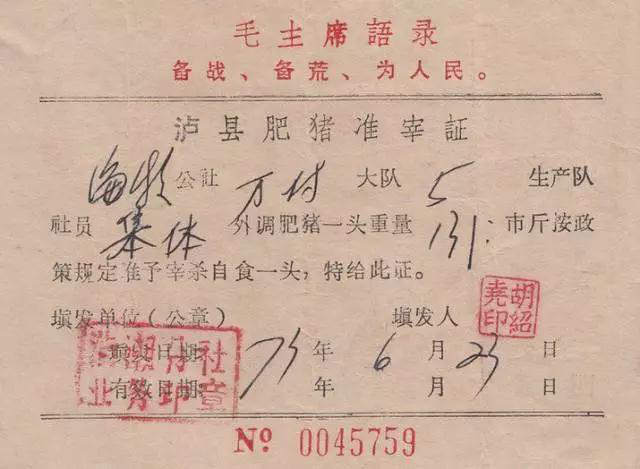 毛主席語录
备战、备荒、为人民。
泸县肥猪准宰証
公社 万村 大队 5 生产队
社员 集体 外调肥猪一头重量 131 市斤按政
策规定准予宰杀自食一头，特给此证。
填发单位（公章） 填发人 胡紹尭印
填发日期 75 年 6 月 23 日
有效日期 年 月 日
业务印章
№ 0045759